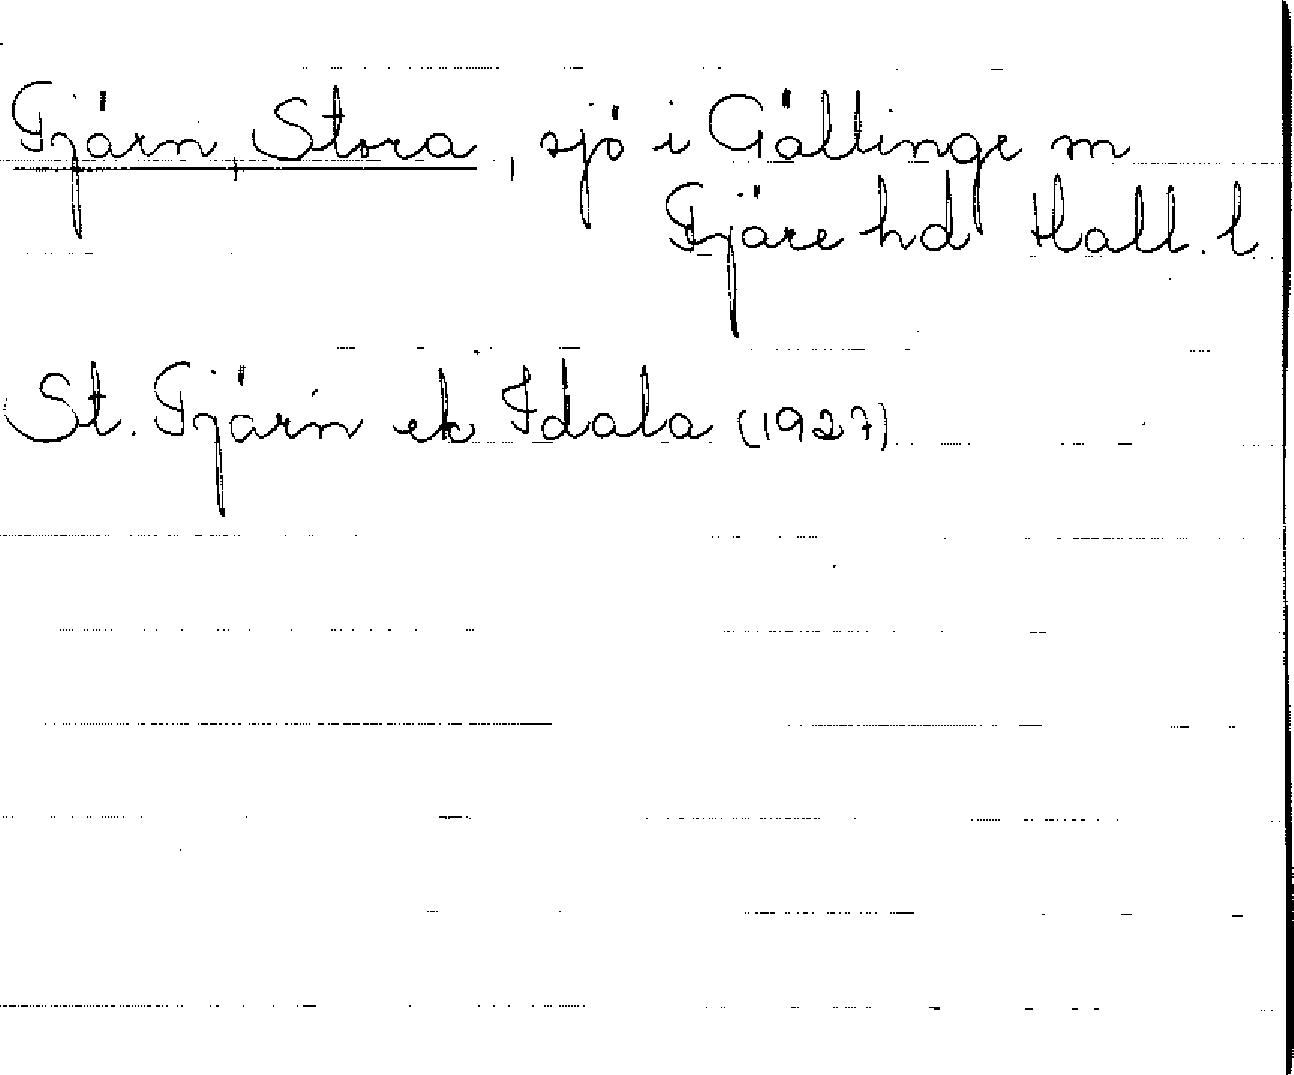 Tjärn, Stora, sjö i Gällinge sn
Fjäre hd Hall. l
St. Tjärn ek Idala (1927)